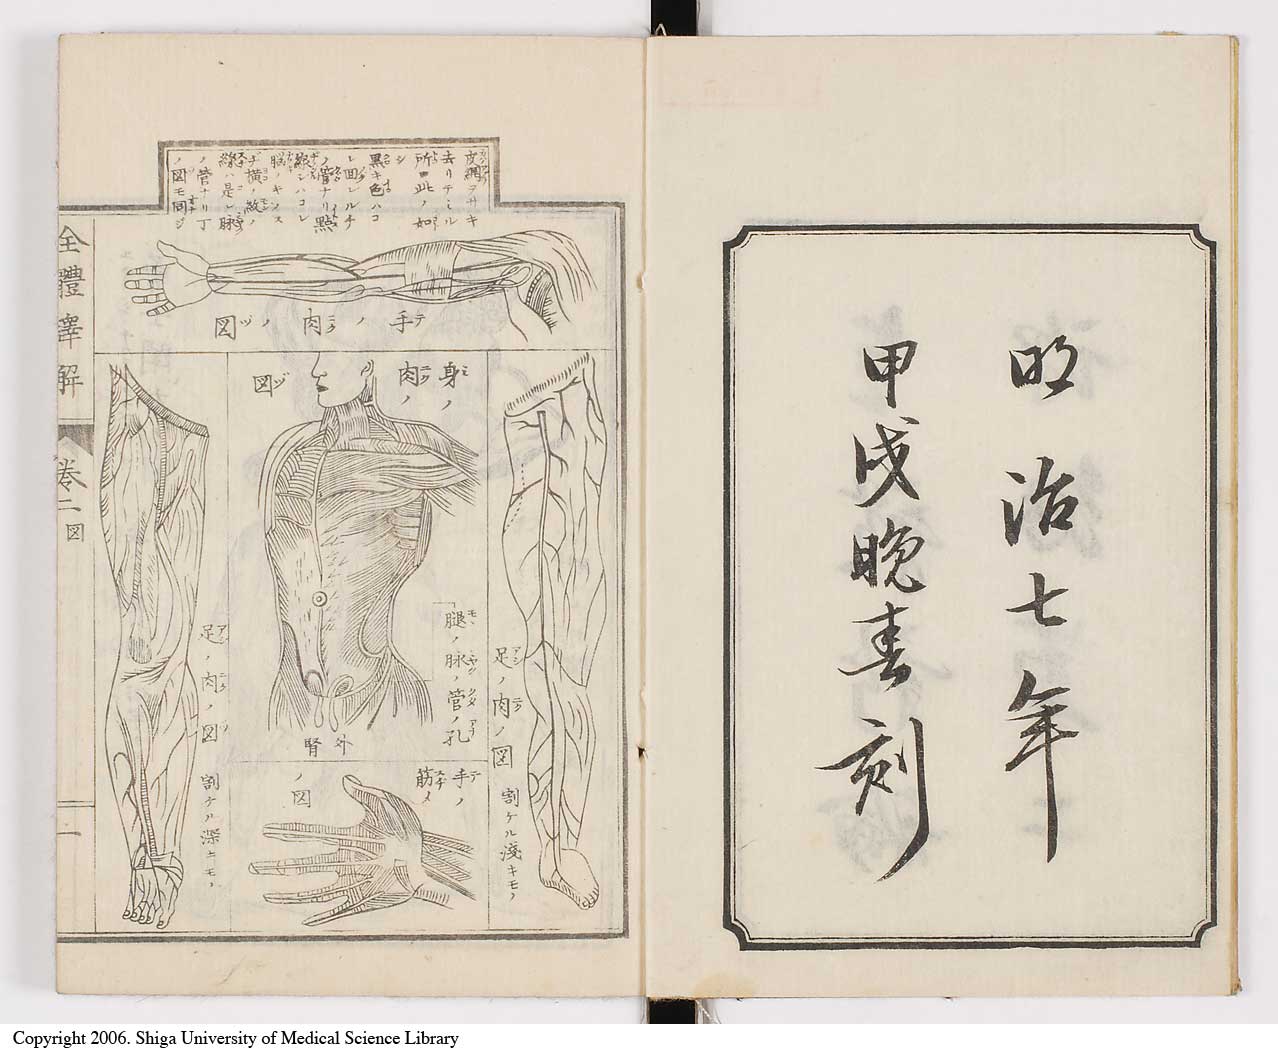 明治七年
甲戌晩春刻
去リテミル
所此ノ如
シ
黒キ色ハコ
レ回レル千
ノ管ナリ點
線ハ是レ脉
ノ管ナリ丁
ノ図モ同ジ
手ノ肉ノ図
身ノ肉ノ図
足ノ肉ノ図
割ケル淺キモノ
腿ノ脉ノ管ノ孔
外腎
手ノ筋ノ図
足ノ肉ノ図
割ケル深キモノ
全體譯解
巻二図
一
Copyright 2006. Shiga University of Medical Science Library